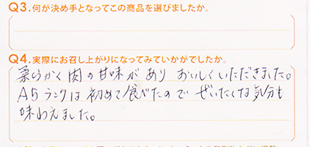 Q3.何が決め手となってこの商品を選びましたか。
Q4.実際にお召し上がりになってみていかがでしたか。
柔らかく肉の甘味があり おいしくいただきました。
A5ランクは初めて食べたので ぜいたくな気分も
味わえました。